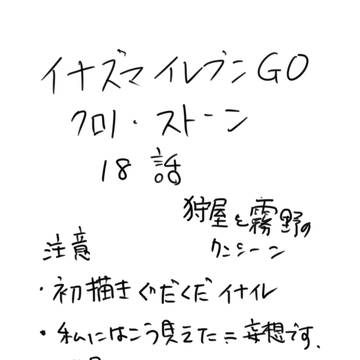 イナズマイレブンGO
クロノ・ストーン
18話
狩屋と霧野の
ワンシーン
注意
・初描きぐだぐだイナイレ
・私にはこう見えた＝妄想です。